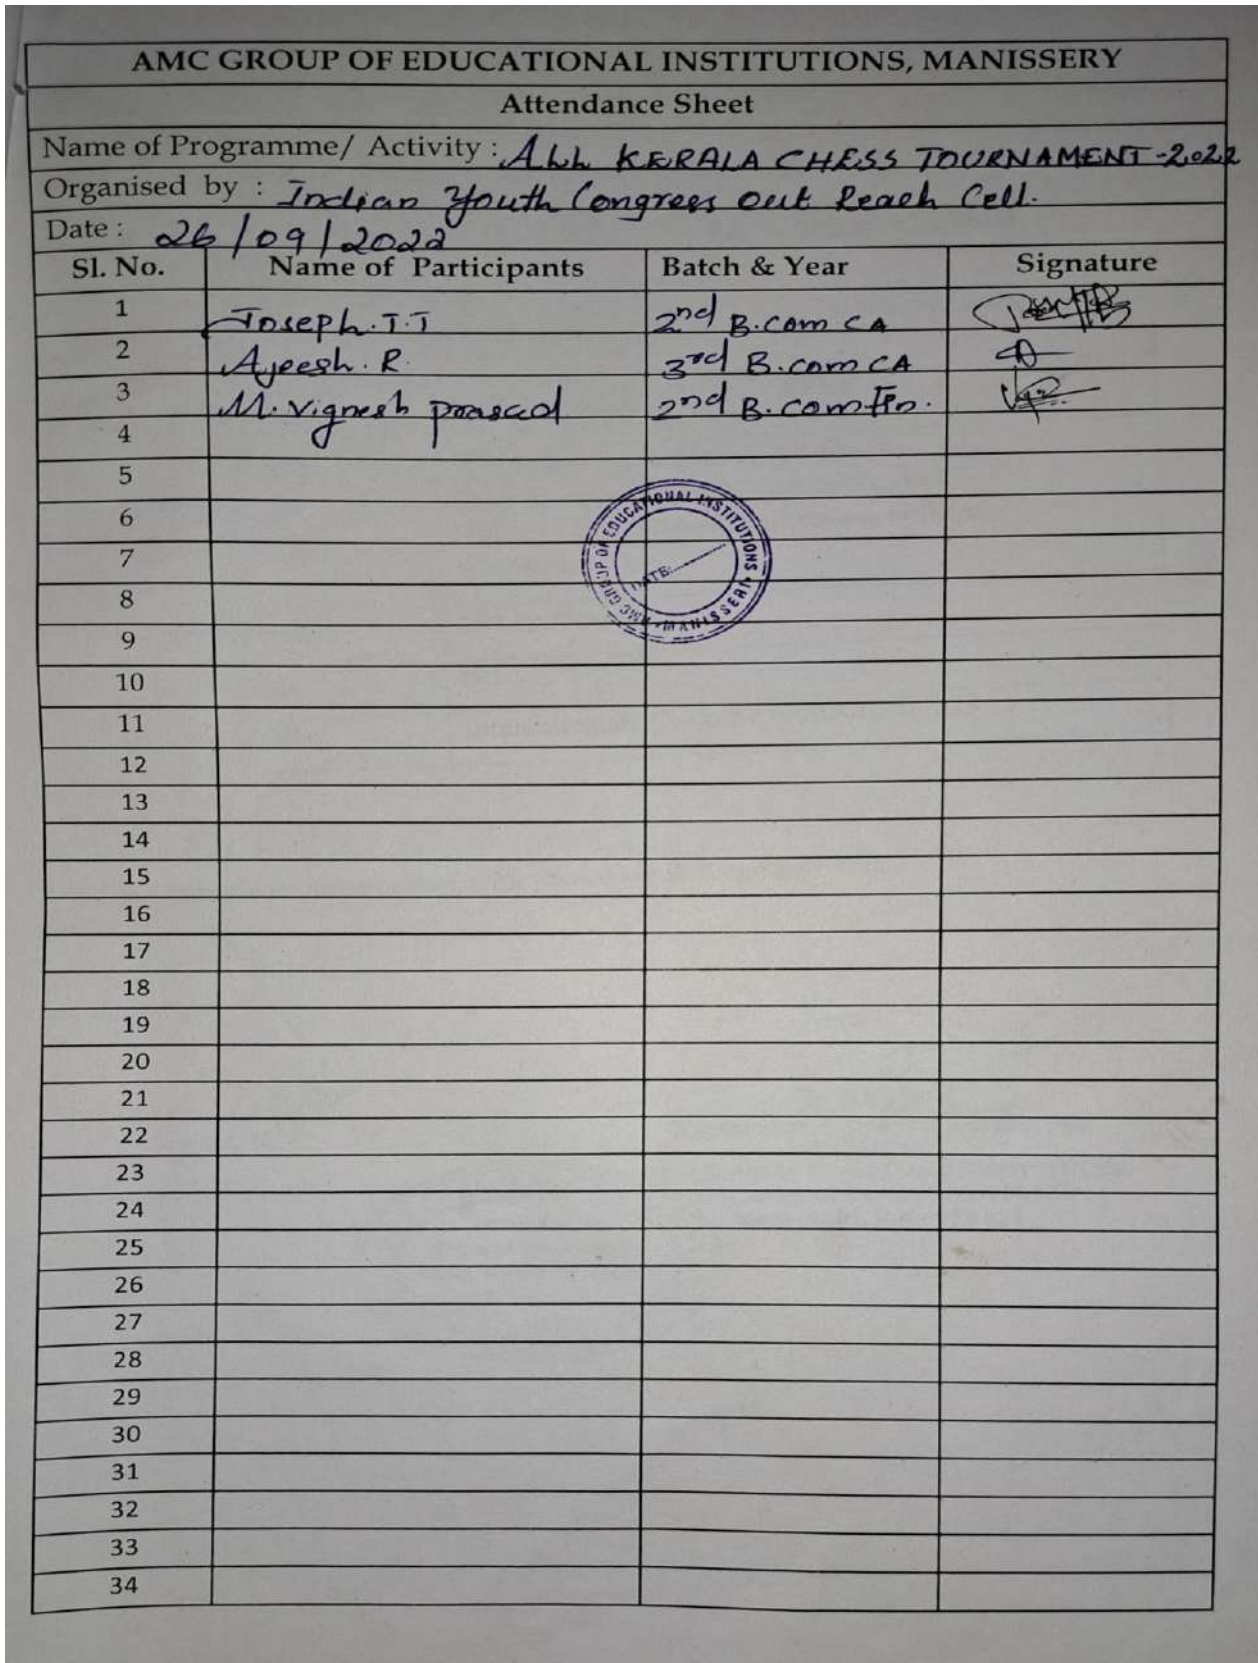 AMC GROUP OF EDUCATIONAL INSTITUTIONS, MANISSERY
Attendance Sheet
Name of Programme/ Activity : ALL KERALA CHESS TOURNAMENT-2022
Organised by : Indian Youth Congress Out Reach Cell.
Date : 26/09/2022
Sl. No. Name of Participants Batch & Year Signature
1 Joseph.T.T 2nd B.com CA
2 Ajeesh.R. 3rd B.com CA
3 M.Vignesh prasad 2nd B.com Fin.
4
5
6
7
8
9
10
11
12
13
14
15
16
17
18
19
20
21
22
23
24
25
26
27
28
29
30
31
32
33
34
AMC GROUP OF EDUCATIONAL INSTITUTIONS
MANISSERI
DATE: